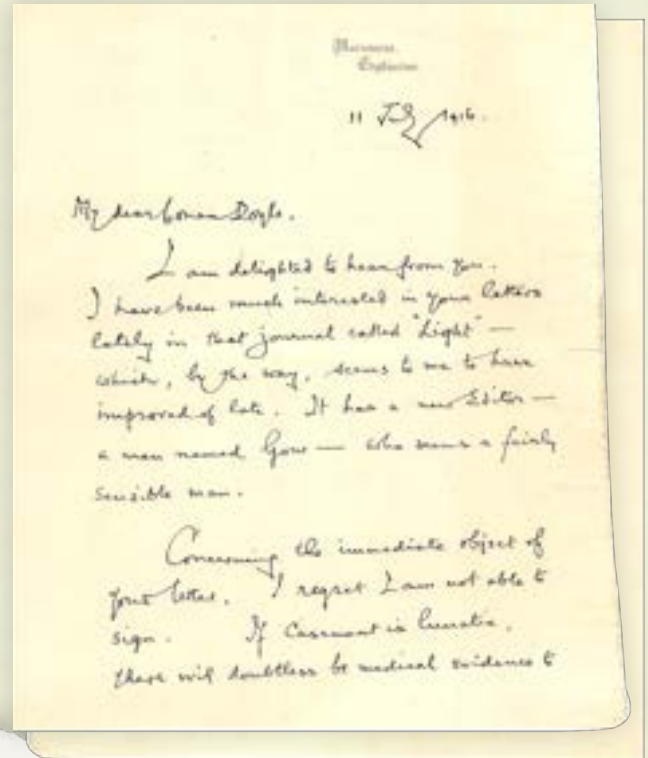 Mariemont,
Edgbaston
11 July 1916.
My dear Conan Doyle.
I am delighted to hear from you.
I have been much interested in your letters
lately in that journal called "Light" —
which, by the way, seems to me to have
improved of late. It has a new Editor —
a man named Gow — who seems a fairly
sensible man.
Concerning the immediate object of
your letter. I regret I am not able to
sign. If Casement is lunatic,
there will doubtless be medical evidence to